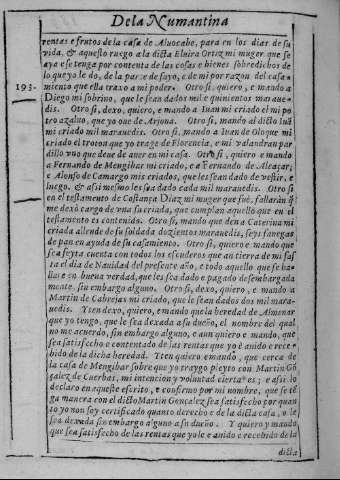 De la Numantina
rentas e frutos de la casa de Alvocabe, para en los dias de su
vida. & aquesto ruego a la dicta Elvira Ortiz mi muger que se
aya e se tenga por contenta de las cosas e bienes sobredichos de
lo que yo le do, de la parte de sayo, e de mi por razon del casa-
193. miento que ella traxo a mi poder. Otro si, quiero, e mando a
Diego mi sobrino, que le sean dados mil e quinientos marave-
dis. Otro si, dexo, quiero, e mando a Iuan mi criado el mi po
tro azalvo, que yo ove de Arjona. Otro si, mando al dicto
mi criado mil maravedis. Otro si, mando a Iuan de Oloque mi
criado el troton que yo trage de Florencia, e mi valandran par
dillo vno que deve de aver en mi casa. Otro si, quiero e mando
a Fernando de Mengibar mi criado, e a Fernando de Alcaçar,
e Alonso de Camargo mis criados, que les sean dado de vestir, e
luego, & asi mesmo les sea dado cada mil maravedis. Otro si
en el testamento de Costança Diaz mi muger que fue, fallaràn q̃
me dexò cargo de vna su criada, que cumplan aquello que en el
testamento es contenido. Otro si, mando que den a Caterina mi
criada allende de su soldada dozientos maravedis, seys fanegas
de pan en ayuda de su casamiento. Otro si, quiero e mando que
sea feyta cuenta con todos los escuderos que an tierra de mi fas
ta el dia de Navidad del presente año, e todo aquello que se ba-
llare en buena verdad, que les sea dado e pagado desembargada
mente, sin embargo alguno. Otro si, dexo, quiero, e mando a
Martin de Cabrejas mi criado, que le sean dados dos mil mara-
vedis. Yten dexo, quiero, e mando que la heredad de Almenar
que yo tengo, que le sea dexada a su dueño, el nombre del qual
no me acuerdo, sin embargo alguno, e aun quiero e mando, que
sea satisfecho e contentado de las rentas que yo è avido e rece-
bido de la dicha heredad. Yten quiero e mando, que cerca de
la casa de Mengibar sobre que yo traygo pleyto con Martin Gõ
çalez de Cuerbas, mi intencion y voluntad cierta es; e asi lo
declaro en aqueste escrito, e confirmo por mi nombre, que se tẽ
ga manera con el dicto Martin Gonçalez sea satisfecho por quan
to yo non soy certificado quanto derecho è de la dicta casa, o le
sea dexada sin embargo alguno a su dueño. Y quiero y mando
que sea satisfecho de las rentas que yo le è avido e recebido de la
dicta